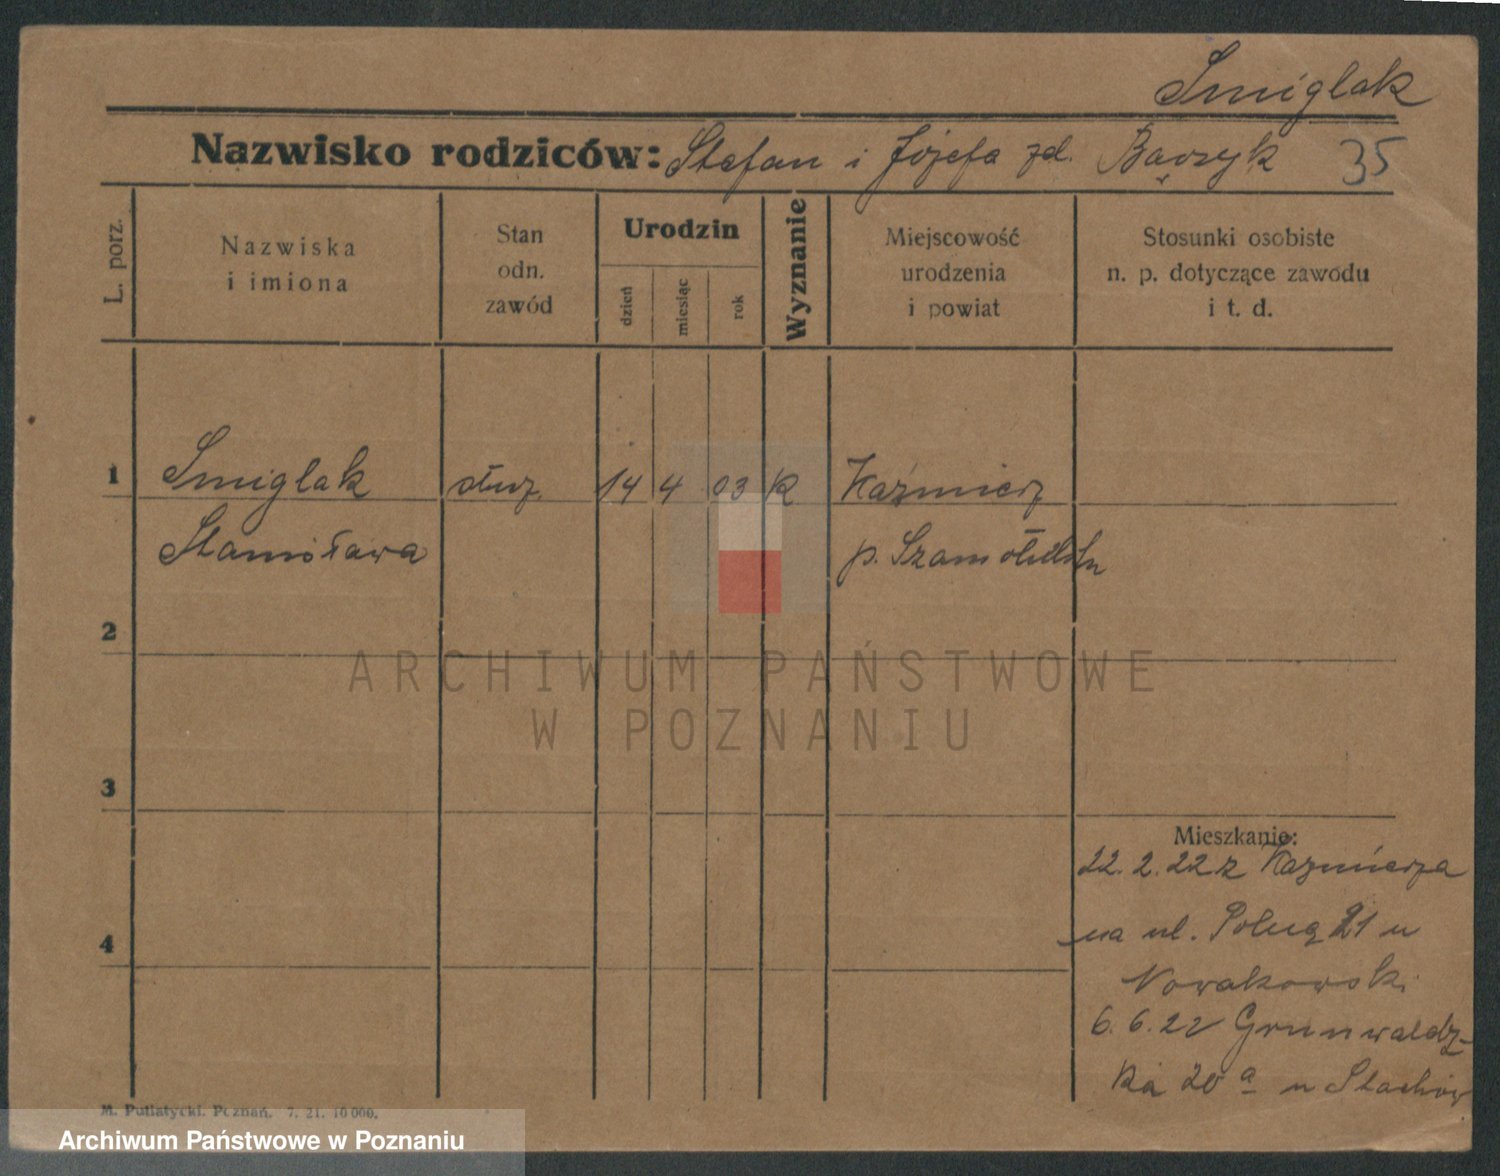 Smiglak
Nazwisko rodziców: Stefan i Józefa zd. Bączyk 35
L. porz.
Nazwiska
i imiona
Stan
odn.
zawód
Urodzin
dzień
miesiąc
rok
Wyznanie
Miejscowość
urodzenia
i powiat
Stosunki osobiste
n. p. dotyczące zawodu
i t. d.
1 Smiglak służ. 14 4 03 k Kaźmierz
Stanisława p. Szamotulski
2
ARCHIWUM PAŃSTWOWE
W POZNANIU
3
Mieszkanie:
22.2.22 z Kaźmierza
na ul. 21 u
4
Nowakowski
6.6.22 Grunwaldz-
ka 20 a u
M. Putiatycki. Poznań. 7. 21. 10 000.
Archiwum Państwowe w Poznaniu